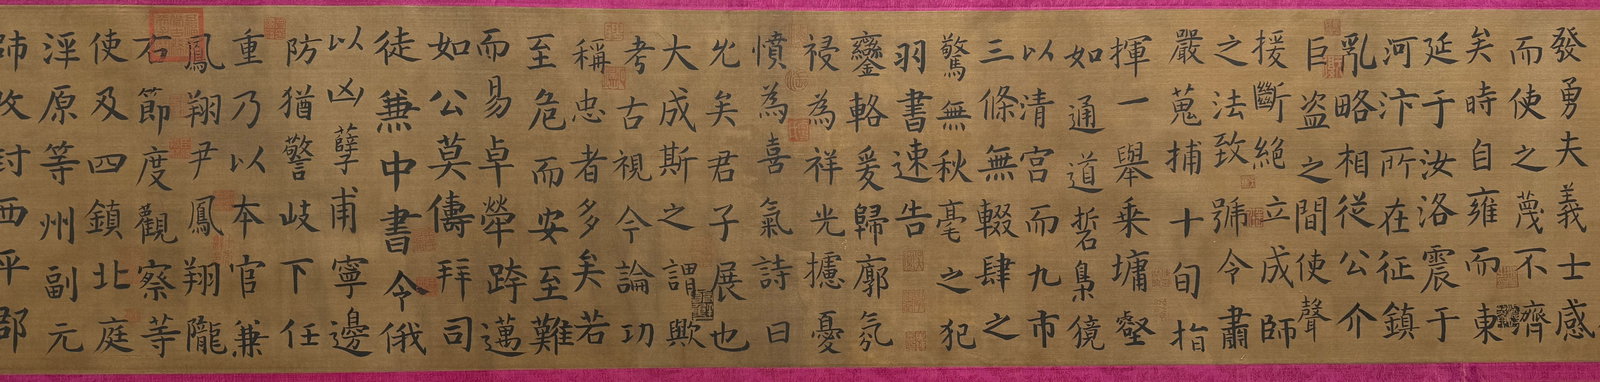 發勇夫義士感
而使之蔑不濟
矣時自雍而東
延于汝洛震于
河汴所在征鎮
亂略相從公介
巨盜之間使聲
援斷絕立成師
之法致號令肅
嚴蒐捕十旬指
揮一舉乘墉壑
如通道哲梟獍
以清宮而九市
三條無輟肆之
驚無秋毫之犯
羽書速告
鑾輅爰歸廓氛
祲為祥光攄憂
憤為喜氣詩曰
允矣君子展也
大成斯之謂歟
考古視今論功
稱忠者多矣若
至危而安至難
而易卓犖跨邁
如公莫儔拜司
徒兼中書令俄
以凶孽甫寧邊
防猶警岐下任
重乃以本官兼
鳳翔尹鳳翔隴
右節度觀察等
使及四鎮北庭
涇原等州副元
帥改封西平郡